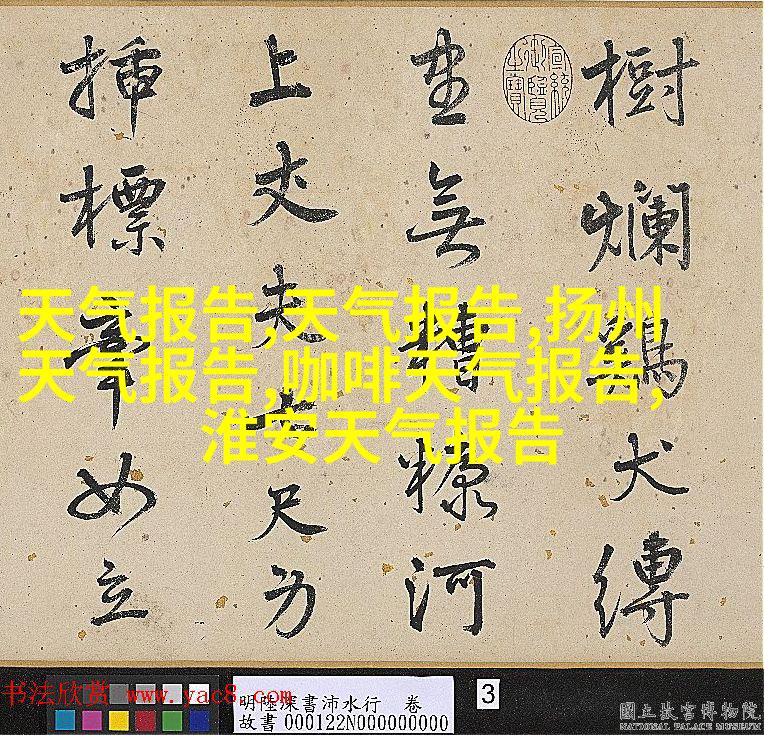 樹爛鷄犬縛
宣統御覽之寶
坐無糠河
上丈夫七尺
插標如立
天气报告,天气报告,扬州
天气报告,咖啡天气报告,
淮安天气报告
书法欣赏 www.yac8.com
明陸深書沛水行 卷
故書 000122N000000000
3
國立故宮博物院
NATIONAL PALACE MUSEUM